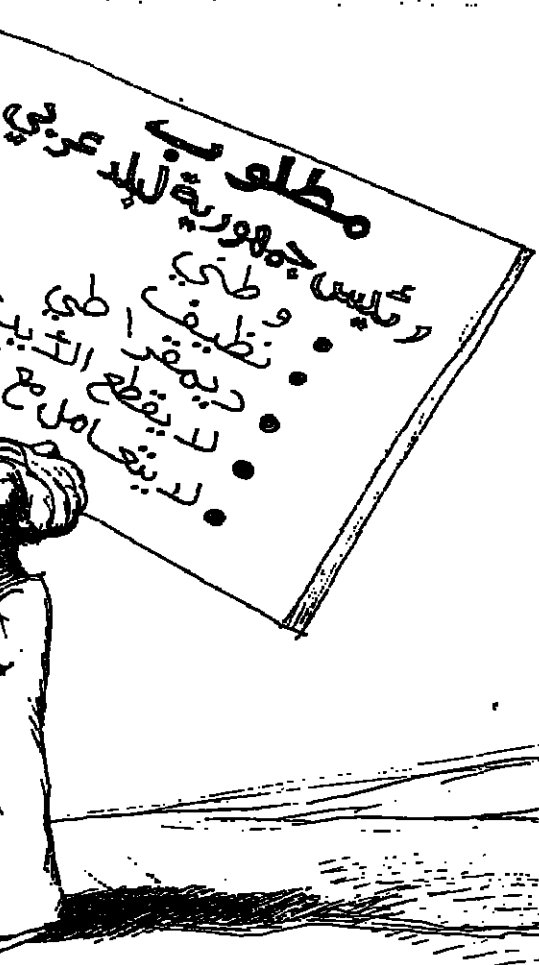 مطلوب
رئيس جمهورية لبلد عربي
• وطني
• نظيف
• ديمقراطي
• لا يقطع
• لا يتعامل مع